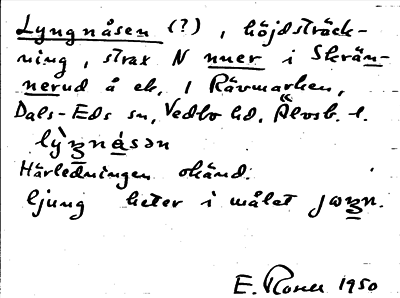 Lyngnåsen (?), höjdsträck-
ning, strax N nner i Skrän-
nerud å ek, i Rävmarken,
Dals-Eds sn, Vedbo hd, Älvsb. l.
lỳʒnásən
Härledningen okänd.
ljung heter i målet jɷʒn.
E. Rosell 1950